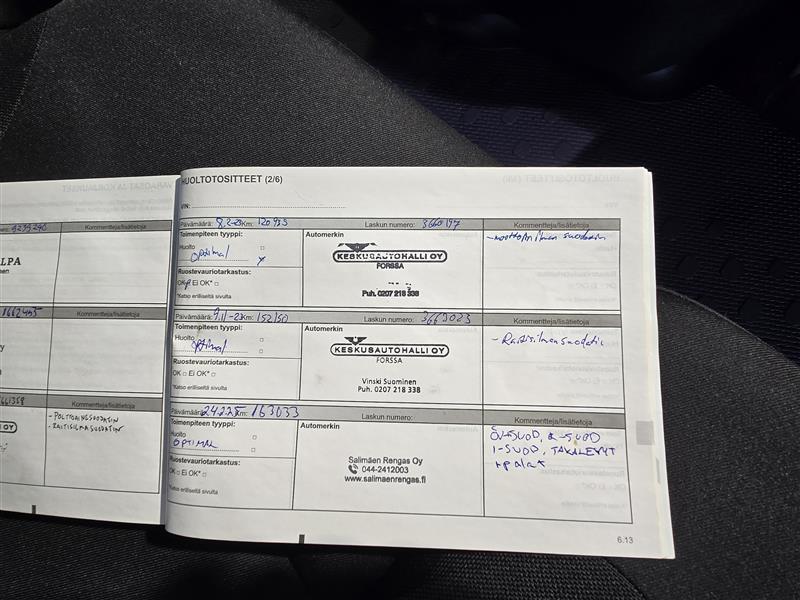 HUOLTOTOSITTEET (2/6)
VIN:
Päivämäärä: 8.2-23 Km: 120 985 Laskun numero: 3660197 Kommentteja/lisätietoja
Toimenpiteen tyyppi:
Huolto
optimal x
Ruostevauriotarkastus:
OK Ei OK*
*Katso erilliseltä sivulta
Automerkin
KESKUSAUTOHALLI OY
FORSSA
Puh. 0207 218 338
- moottorin ilman suodatin
Päivämäärä: 9.11-23 Km: 152150 Laskun numero: 3663023 Kommentteja/lisätietoja
Toimenpiteen tyyppi:
Huolto
optimal
Ruostevauriotarkastus:
OK Ei OK*
*Katso erilliseltä sivulta
Automerkin
KESKUSAUTOHALLI OY
FORSSA
Vinski Suominen
Puh. 0207 218 338
- Raitisilmansuodatin
Päivämäärä: 24225 Km: 163033 Laskun numero: Kommentteja/lisätietoja
Toimenpiteen tyyppi:
Huolto
OPTIMAL
Ruostevauriotarkastus:
OK Ei OK*
*Katso erilliseltä sivulta
Automerkin
Salimäen Rengas Oy
044-2412003
www.salimaenrengas.fi
ÖV-SUOD, R-SUOD
I-SUOD, TAKALEVYT
+palat
6.13
Kommentteja/lisätietoja
LPA
Kommentteja/lisätietoja
Kommentteja/lisätietoja
- POLTTOAINESUODATIN
- RAITISILMASUODATIN
OY